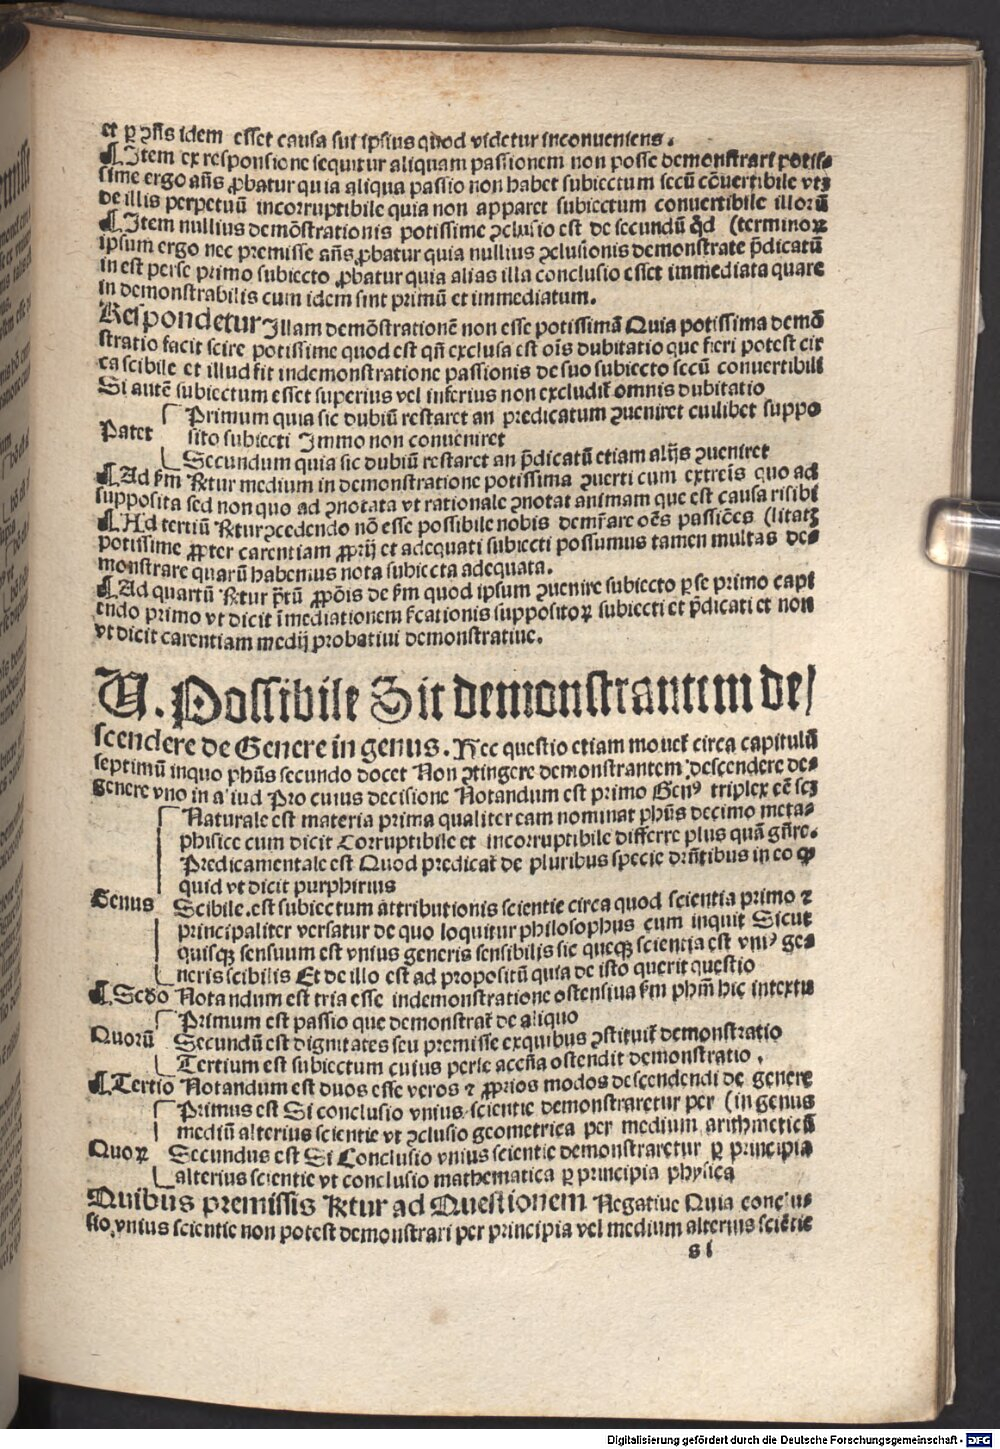 et ꝑ ꝯñs idem esset causa sui ipsius quod videtur inconueniens.
¶Item ex responsione sequitur aliquam passionem non posse demonstrari potis-
sime ergo añs ꝓbatur quia aliqua passio non habet subiectum secū cōuertibile vtꝫ
de illis perpetuū incorruptibile quia non apparet subiectum conuertibile illorū
¶Item nullius demōstrationis potissime ꝯclusio est de secundū q̄d (terminoꝝ
ipsum ergo nec premisse añs ꝓbatur quia nullius ꝯclusionis demonstrate p̄dicatū
in est perse primo subiecto ꝓbatur quia alias illa conclusio esset immediata quare
in demonstrabilis cum idem sint primū et immediatum.
Respondetur Illam demōstrationē non esse potissimā Quia potissima demō
stratio facit scire potissime quod est qñ exclusa est oīs dubitatio que fieri potest cir
ca scibile et illud fit indemonstratione passionis de suo subiecto secū conuertibili
Si autē subiectum esset superius vel inferius non excludit̄ omnis dubitatio
Primum quia sic dubiū restaret an predicatum ꝯueniret cuilibet suppo
Patet sito subiecti Immo non conueniret
Secundum quia sic dubiū restaret an p̄dicatū etiam alijs ꝯueniret
¶Ad ẜm ℟tur medium in demonstratione potissima ꝯuerti cum extreīs quo ad
supposita sed non quo ad ꝯnotata vt rationale ꝯnotat animam que est causa risibi
¶Ad tertiū ℟tur ꝯcedendo nō esse possibile nobis demr̄are oēs passiōes (litatꝫ
potissime ꝓpter carentiam ꝓprij et adequati subiecti possumus tamen multas de-
monstrare quarū habemus nota subiecta adequata.
¶Ad quartū ℟tur p̄tū ꝓpōis de ẜm quod ipsum ꝯuenire subiecto ꝑse primo capi
endo primo vt dicit īmediationem ẜcationis suppositoꝝ subiecti et p̄dicati et non
vt dicit carentiam medij probatiui demonstratiue.
V. Possibile Sit demonstrantem de/
scendere de Genere in genus. Hec questio etiam mouet̄ circa capitulū
septimū inquo phūs secundo docet Non ꝯtingere demonstrantem descendere de-
genere vno in aliud Pro cuius decisione Notandum est primo Genꝰ triplex eē scꝫ
Naturale est materia prima qualiter eam nominat phūs decimo meta-
phisice cum dicit Corruptibile et incorruptibile differre plus quā gn̄re.
Predicamentale est Quod predicat̄ de pluribus specie drn̄tibus in eo ꝙ
quid vt dicit purphirius
Genus Scibile.est subiectum attributionis scientie circa quod scientia primo ⁊
principaliter versatur de quo loquitur philosophus cum inquit Sicut
quisqꝫ sensuum est vnius generis sensibilis sic queqꝫ scientia est vniꝰ ge-
neris scibilis Et de illo est ad propositū quia de isto querit questio
¶Scd̄o Notandum est tria esse indemonstratione ostensiua ẜm phm̄ hic intextu
Primum est passio que demonstrat̄ de aliquo
Quorū Secundū est dignitates seu premisse exquibus ꝯstituit̄ demonstratio
Tertium est subiectum cuius perse accn̄a ostendit demonstratio.
¶Tertio Notandum est duos esse veros ⁊ ꝓprios modos descendendi de genere
Primus est Si conclusio vnius scientie demonstraretur per (in genus
mediū alterius scientie vt ꝯclusio geometrica per medium arithmeticū
Quoꝝ Secundus est Si Conclusio vnius scientie demonstraretur ꝑ principia
alterius scientie vt conclusio mathematica ꝑ principia physica
Quibus premissis ℟tur ad Questionem Negatiue Quia conclu-
sio vnius scientie non potest demonstrari per principia vel medium alterius sciētie
s i
Digitalisierung gefördert durch die Deutsche Forschungsgemeinschaft - DFG